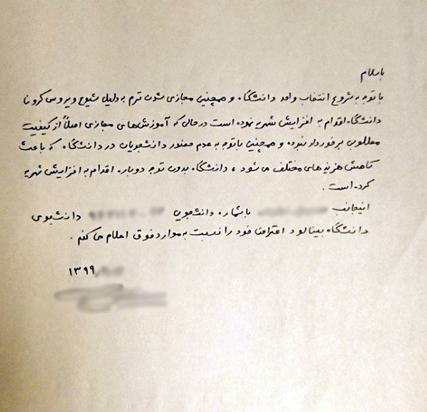 باسلام
با توجه به شروع انتخاب واحد دانشگاه و همچنین مجازی شدن ترم به دلیل شیوع ویروس کرونا
دانشگاه اقدام به افزایش شهریه نموده است در حالی که آموزش‌های مجازی اصلاً از کیفیت
مطلوبی برخوردار نبوده و همچنین باتوجه به عدم حضور دانشجویان در دانشگاه که باعث
کاهش هزینه‌های مختلف می‌شود، دانشگاه بدون توجه دوباره اقدام به افزایش شهریه
کرده است.
اینجانب با شماره دانشجویی دانشجوی
دانشگاه بینالود اعتراض خود را نسبت به موارد فوق اعلام می‌کنم.
۱۳۹۹